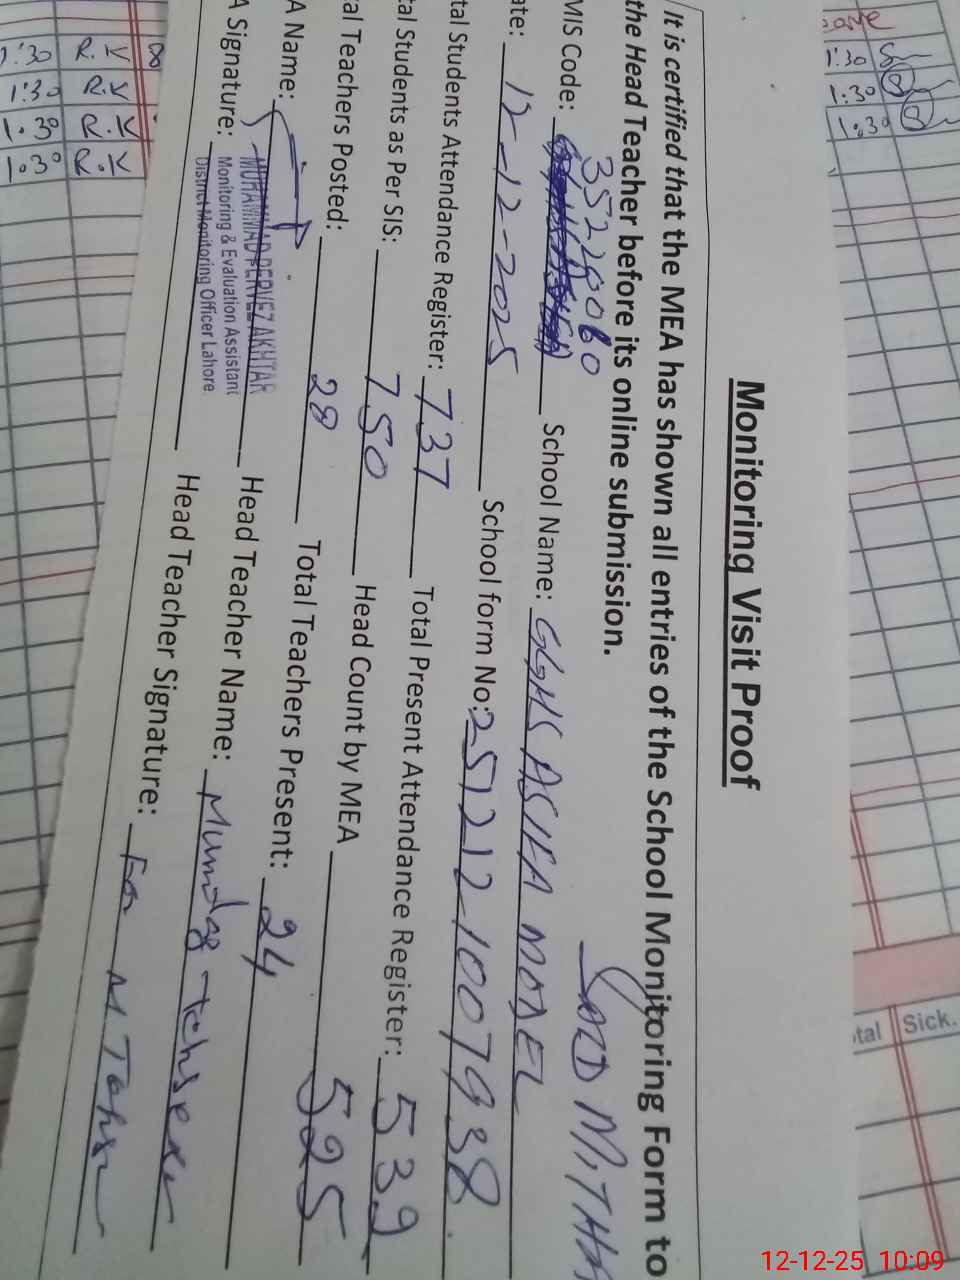 Monitoring Visit Proof
It is certified that the MEA has shown all entries of the School Monitoring Form to
the Head Teacher before its online submission.
MIS Code: 35220060 School Name: GGHS ASIFA MODEL
ate: 12-12-2025 School form No: 2512121007938
tal Students Attendance Register: 737 Total Present Attendance Register: 539
tal Students as Per SIS: 750 Head Count by MEA 525
al Teachers Posted: 28 Total Teachers Present: 24
A Name: MUHAMMAD PERVEZ AKHTAR Head Teacher Name: Mumtaz
Monitoring & Evaluation Assistant
District Monitoring Officer Lahore
A Signature: Head Teacher Signature:
1:30 R.K
1:30 R.K
1.30 R.K
1.30 R.K
1:30
1.30
1.30
tal Sick.
12-12-25 10:09